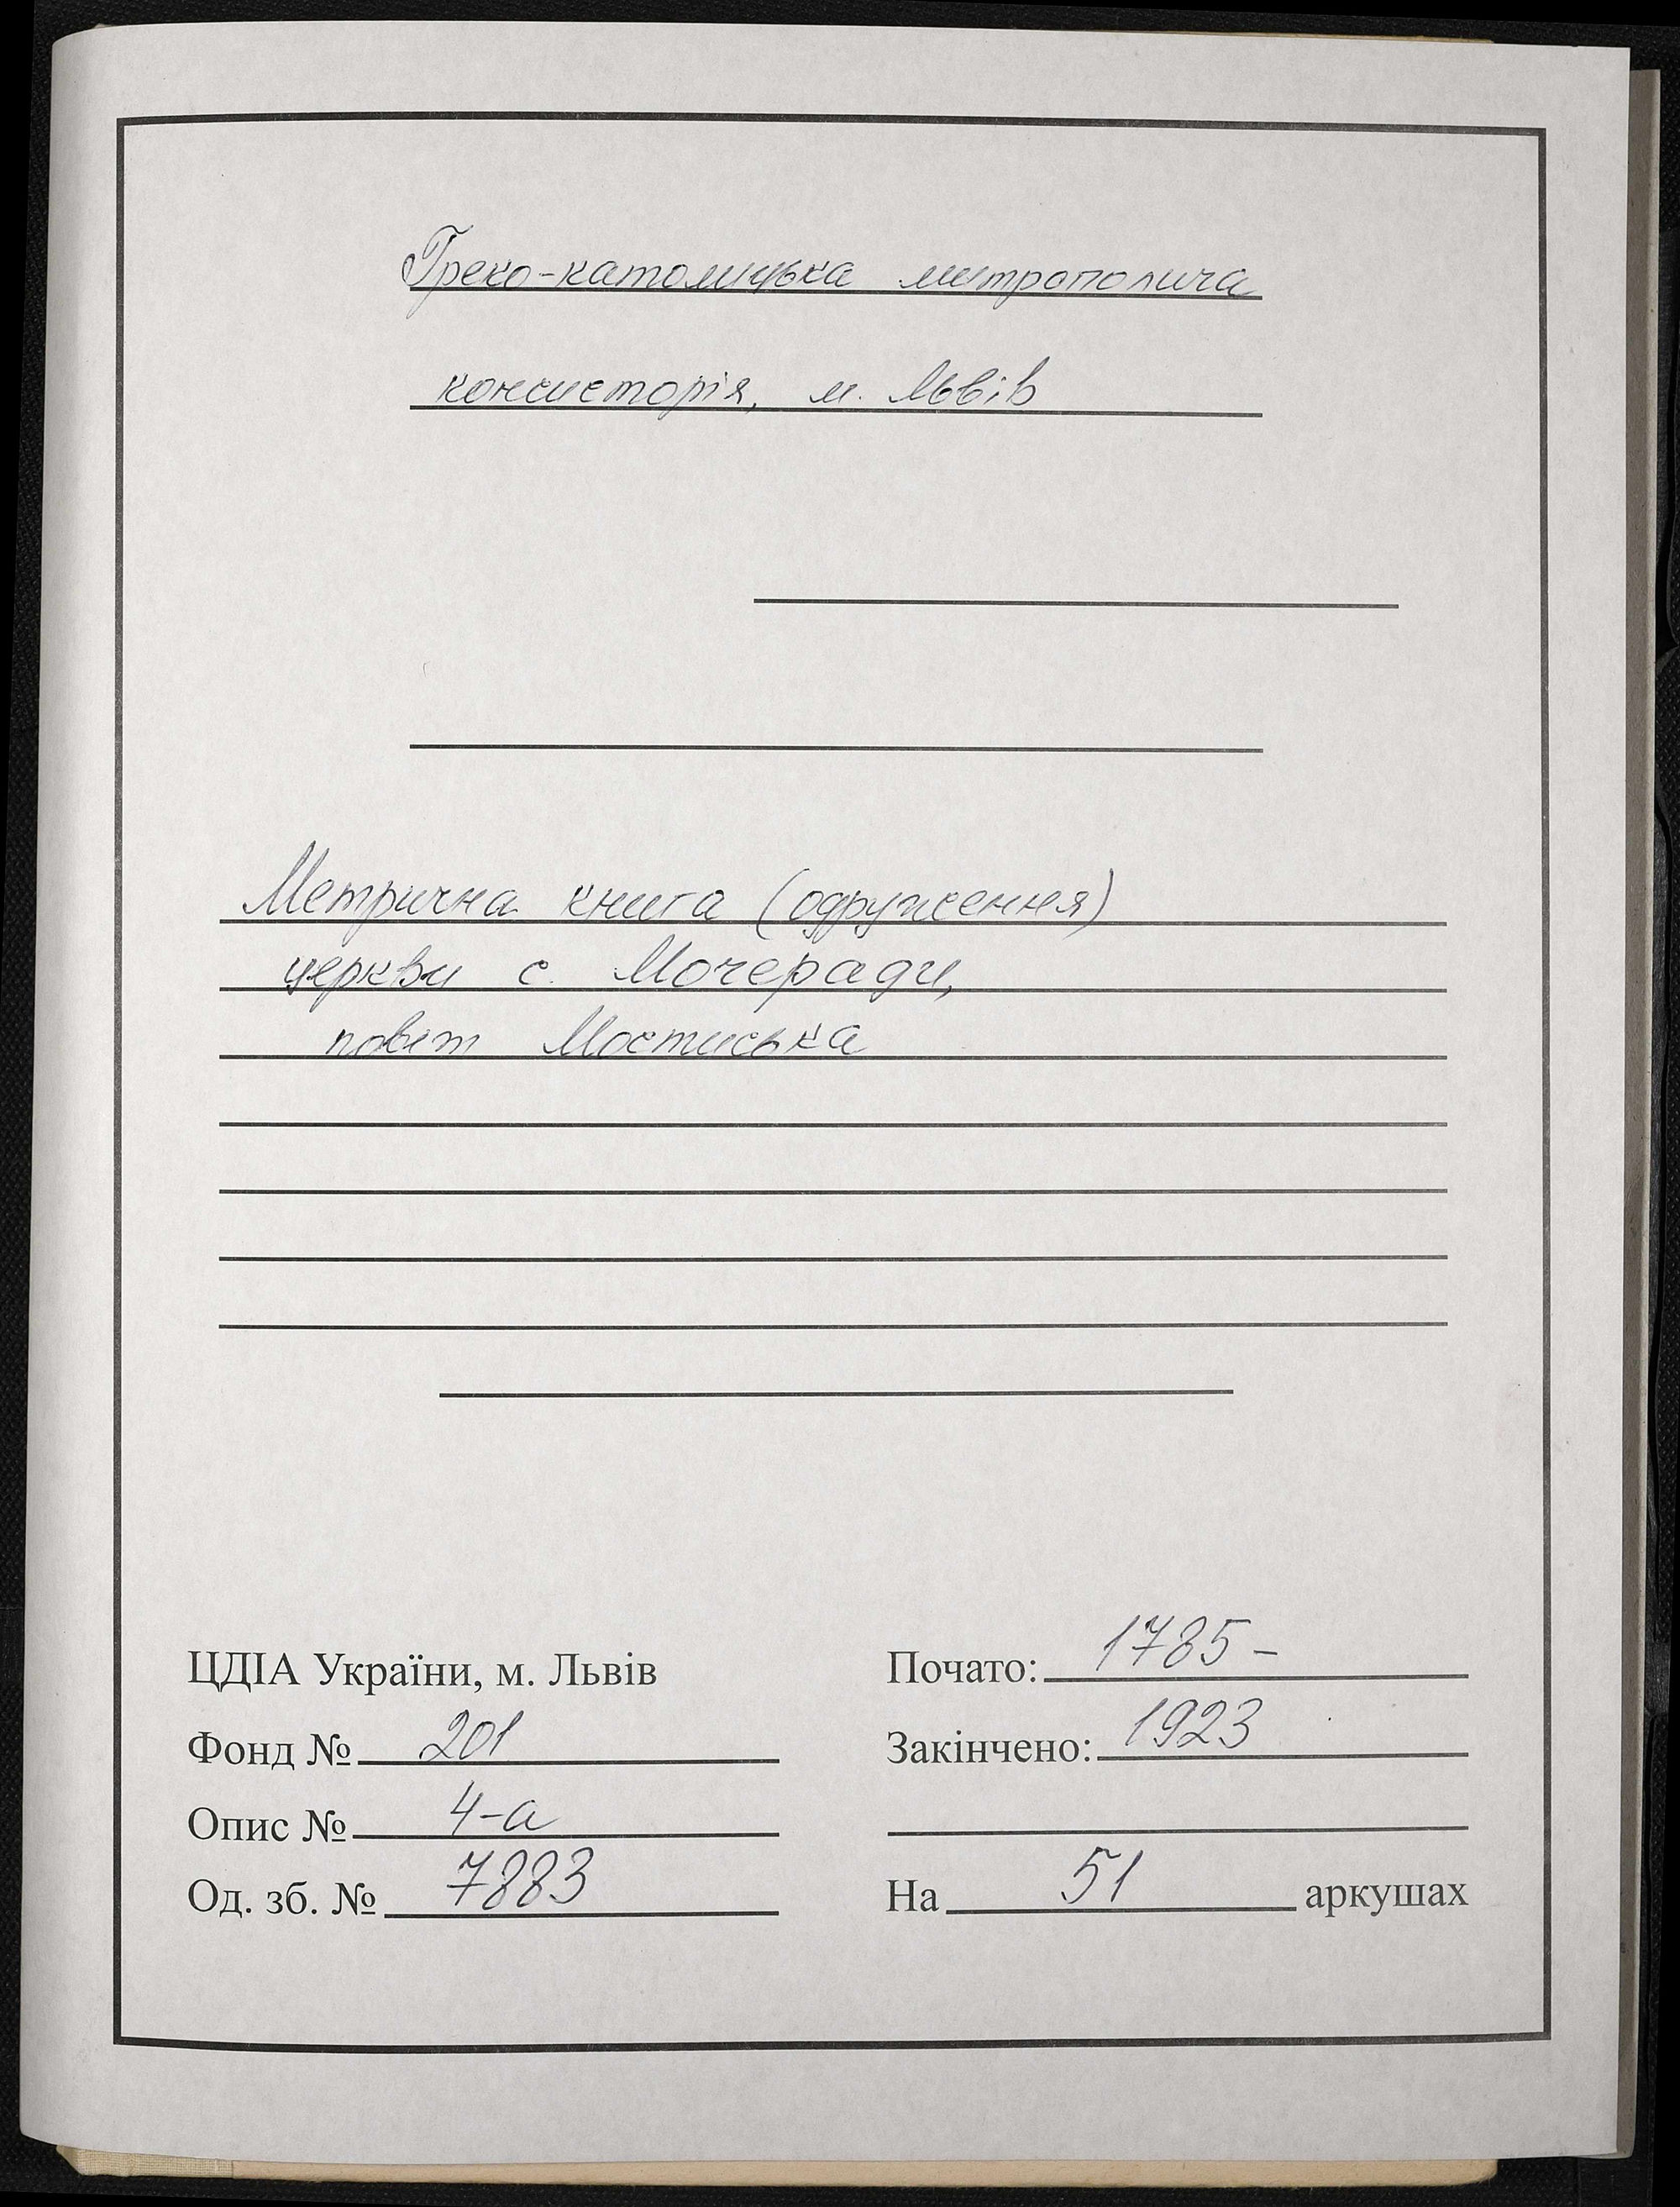 Греко-католицька митрополича
консисторія, м. Львів
Метрична книга (одруження)
церкви с. Мочеради,
повіт Мостиська
ЦДІА України, м. Львів
Фонд № 201
Опис № 4-а
Од. зб. № 7883
Почато: 1785 –
Закінчено: 1923
На 51 аркушах